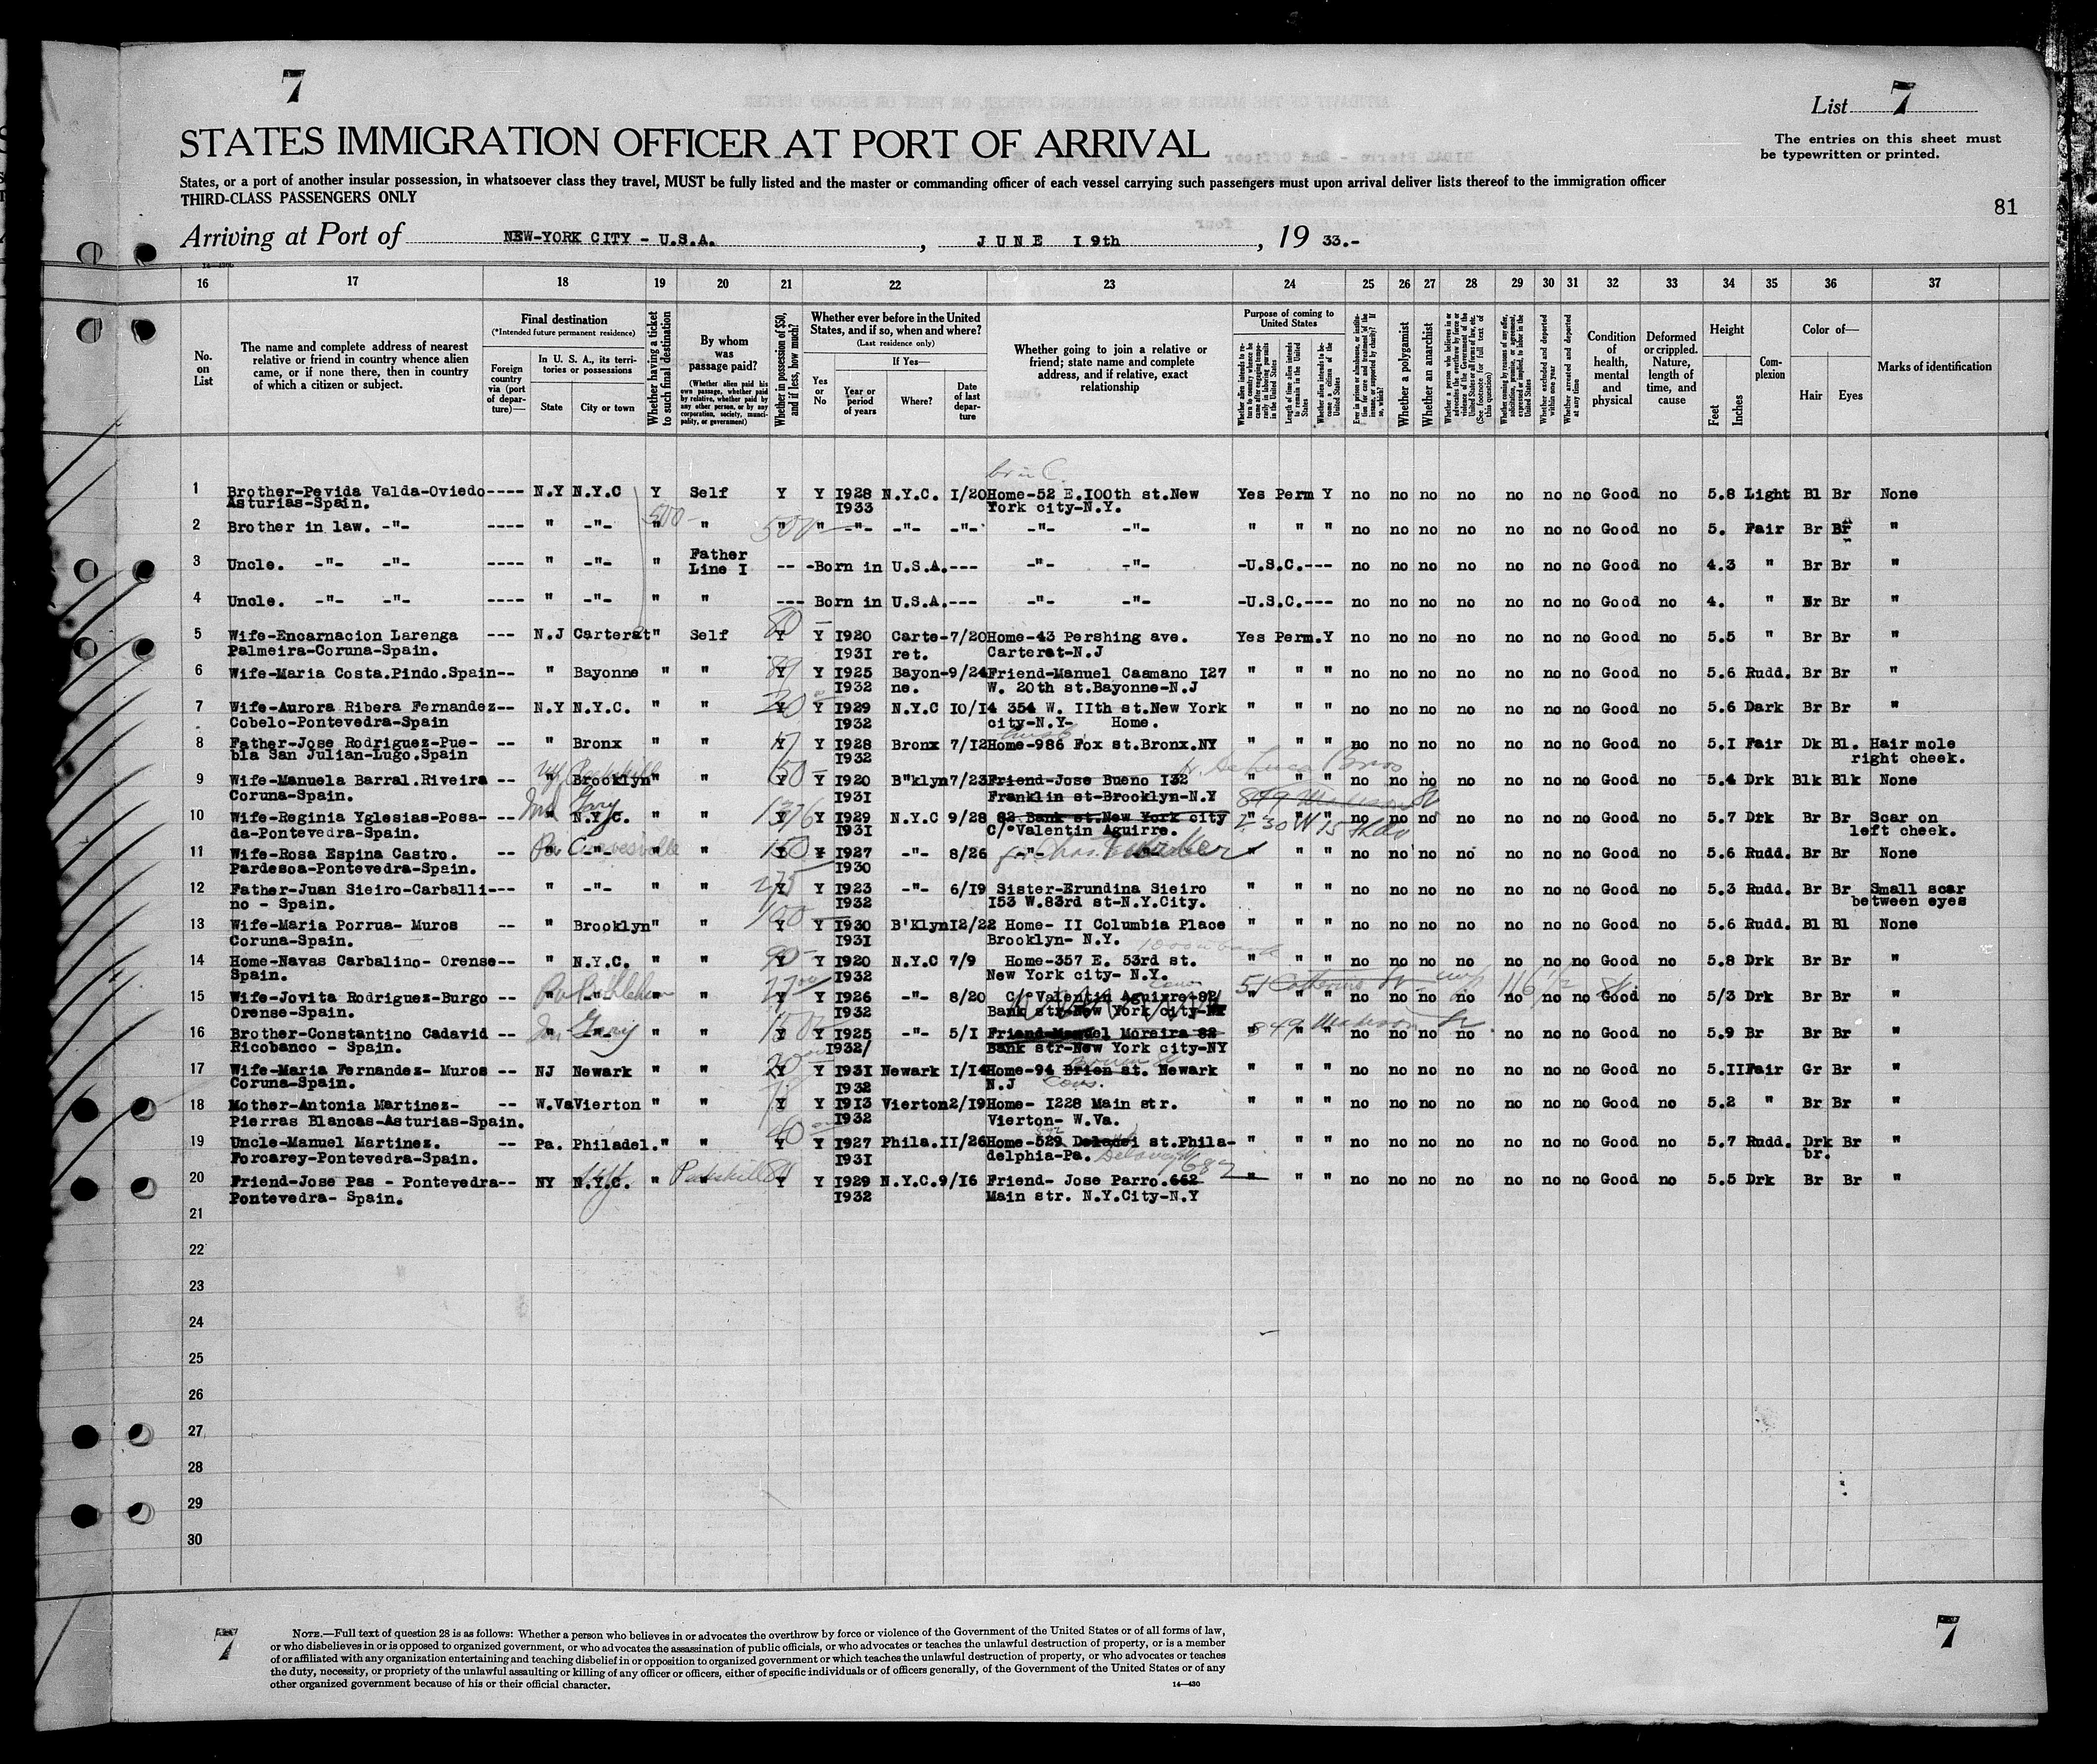 7
List 7
STATES IMMIGRATION OFFICER AT PORT OF ARRIVAL
The entries on this sheet must
be typewritten or printed.
States, or a port of another insular possession, in whatsoever class they travel, MUST be fully listed and the master or commanding officer of each vessel carrying such passengers must upon arrival deliver lists thereof to the immigration officer
THIRD-CLASS PASSENGERS ONLY
81
Arriving at Port of NEW-YORK CITY - U.S.A. , JUNE I9th , 19 33.-
16 17 18 19 20 21 22 23 24 25 26 27 28 29 30 31 32 33 34 35 36 37
No. on List
The name and complete address of nearest relative or friend in country whence alien came, or if none there, then in country of which a citizen or subject.
Final destination
(*Intended future permanent residence)
Foreign country via (port of departure)—
In U. S. A., its territories or possessions
State
City or town
Whether having a ticket to such final destination
By whom was passage paid?
(Whether alien paid his own passage, whether paid by relative, whether paid by any other person, or by any corporation, society, municipality, or government)
Whether in possession of $50, and if less, how much?
Whether ever before in the United States, and if so, when and where?
(Last residence only)
Yes or No
If Yes—
Year or period of years
Where?
Date of last departure
Whether going to join a relative or friend; state name and complete address, and if relative, exact relationship
Purpose of coming to United States
Whether a polygamist
Whether an anarchist
Condition of health, mental and physical
Deformed or crippled. Nature, length of time, and cause
Height
Feet
Inches
Complexion
Color of—
Hair
Eyes
Marks of identification
1 Brother-Pevida Valda-Oviedo---- N.Y N.Y.C Y Self Y Y I928 N.Y.C. I/20 Home-52 E.I00th st.New Yes Perm Y no no no no no no no Good no 5.8 Light Bl Br None
Asturias-Spain. I933 York city-N.Y.
2 Brother in law. -"- ---- " -"- " " " " -"- -"- -"- -"- -"- " " " no no no no no no no Good no 5. Fair Br Br "
3 Uncle. -"- -"- ---- " -"- " Father -- -Born in U.S.A.--- -"- -"- -U.S.C.--- no no no no no no no Good no 4.3 " Br Br "
Line I
4 Uncle. -"- -"- ---- " -"- " " --- Born in U.S.A.--- -"- -"- -U.S.C.--- no no no no no no no Good no 4. " Br "
5 Wife-Encarnacion Larenga --- N.J Carterat " Self 80 Y Y I920 Carte- 7/20 Home-43 Pershing ave. Yes Perm.Y no no no no no no no Good no 5.5 " Br Br "
Palmeira-Coruna-Spain. I931 ret. Carterat-N.J
6 Wife-Maria Costa.Pindo.Spain-- " Bayonne " " Y Y I925 Bayon- 9/24 Friend-Manuel Caamano I27 " " " no no no no no no no Good no 5.6 Rudd. Br Br "
I932 ne. W. 20th st.Bayonne-N.J
7 Wife-Aurora Ribera Fernandez-- N.Y N.Y.C. " " Y Y I929 N.Y.C I0/I4 354 W. IIth st.New York " " " no no no no no no no Good no 5.6 Dark Br Br "
Cobelo-Pontevedra-Spain I932 city-N.Y- Home.
8 Father-Jose Rodriguez-Pue- -- " Bronx " " Y Y I928 Bronx 7/I2 Home-986 Fox st.Bronx.NY " " " no no no no no no no Good no 5.I Fair Dk Bl. Hair mole
bla San Julian-Lugo.Spain I932 right cheek.
9 Wife-Manuela Barral.Riveira -- " Brooklyn " " Y Y I920 B"klyn 7/23 Friend-Jose Bueno I32 " " " no no no no no no no Good no 5.4 Drk Blk Blk None
Coruna-Spain. I931 Franklin st-Brooklyn-N.Y
10 Wife-Reginia Yglesias-Posa- -- Gary N.Y.C. " " Y Y I929 N.Y.C 9/28 82 Bank st.New York city " " " no no no no no no no Good no 5.7 Drk Br Br Scar on
da-Pontevedra-Spain. I931 C/°Valentin Aguirre. left cheek.
11 Wife-Rosa Espina Castro. -- -"- " " Y Y I927 -"- 8/26 -"- " " " no no no no no no no Good no 5.6 Rudd. Br Br None
Pardesoa-Pontevedra-Spain. I930
12 Father-Juan Sieiro-Carballi--- " -"- " " Y Y I923 -"- 6/I9 Sister-Erundina Sieiro " " " no no no no no no no Good no 5.3 Rudd. Br Br Small scar
no - Spain. I932 I53 W.83rd st-N.Y.City. between eyes
13 Wife-Maria Porrua- Muros -- " Brooklyn " " Y Y I930 B'Klyn I2/22 Home- II Columbia Place " " " no no no no no no no Good no 5.6 Rudd. Bl Bl None
Coruna-Spain. I931 Brooklyn- N.Y.
14 Home-Navas Carbalino- Orense-- " N.Y.C. " " Y Y I920 N.Y.C 7/9 Home-357 E. 53rd st. " " " no no no no no no no Good no 5.8 Drk Br Br "
Spain. I932 New York city- N.Y.
15 Wife-Jovita Rodriguez-Burgo -- -"- " " Y Y I926 -"- 8/20 C/°Valentin Aguirre-82 " " no no no no no no no Good no 5/3 Drk Br Br "
Orense-Spain. I932 Bank str-New York city-NY
16 Brother-Constantino Cadavid -- Gary -"- " " Y Y I925 -"- 5/I Friend-Manuel Moreira 82 849 Madison " " " no no no no no no no Good no 5.9 Br Br Br "
Ricobanco - Spain. I932/ Bank str-New York city-NY
17 Wife-Maria Fernandez- Muros -- NJ Newark " " 20 Y Y I931 Newark I/I4 Home-94 Brien st. Newark " " " no no no no no no no Good no 5.II Fair Gr Br "
Coruna-Spain. I932 N.J
18 Mother-Antonia Martinez- -- W.Va Vierton " " Y Y I913 Vierton 2/I9 Home- I228 Main str. " " " no no no no no no no Good no 5.2 " Br Br "
Pierras Blancas-Asturias-Spain. I932 Vierton- W.Va.
19 Uncle-Manuel Martinez. -- Pa. Philadel. " " 40 Y Y I927 Phila. II/26 Home-529 st.Phila- " " " no no no no no no no Good no 5.7 Rudd. Drk Br "
Forcarey-Pontevedra-Spain. I931 delphia-Pa. br.
20 Friend-Jose Pas - Pontevedra-- NY N.Y.C. " Peekskill " Y Y I929 N.Y.C. 9/I6 Friend- Jose Parro.662 " " " no no no no no no no Good no 5.5 Drk Br Br "
Pontevedra- Spain. I932 Main str. N.Y.City-N.Y
21
22
23
24
25
26
27
28
29
30
7
NOTE.—Full text of question 28 is as follows: Whether a person who believes in or advocates the overthrow by force or violence of the Government of the United States or of all forms of law,
or who disbelieves in or is opposed to organized government, or who advocates the assassination of public officials, or who advocates or teaches the unlawful destruction of property, or is a member
of or affiliated with any organization entertaining and teaching disbelief in or opposition to organized government or which teaches the unlawful destruction of property, or who advocates or teaches
the duty, necessity, or propriety of the unlawful assaulting or killing of any officer or officers, either of specific individuals or of officers generally, of the Government of the United States or of any
other organized government because of his or their official character.
14—430
7